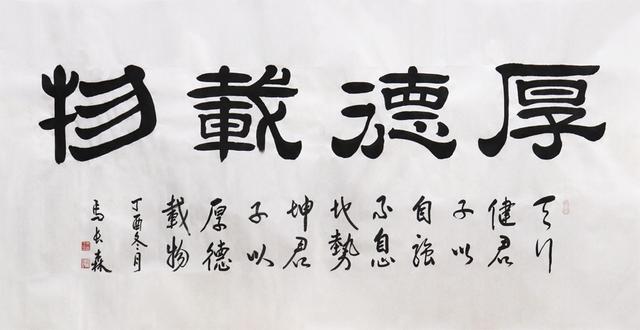 厚德載物
天行
健君
子以
自強
不息
地勢
坤君
子以
厚德
載物
丁酉冬月
馬長森